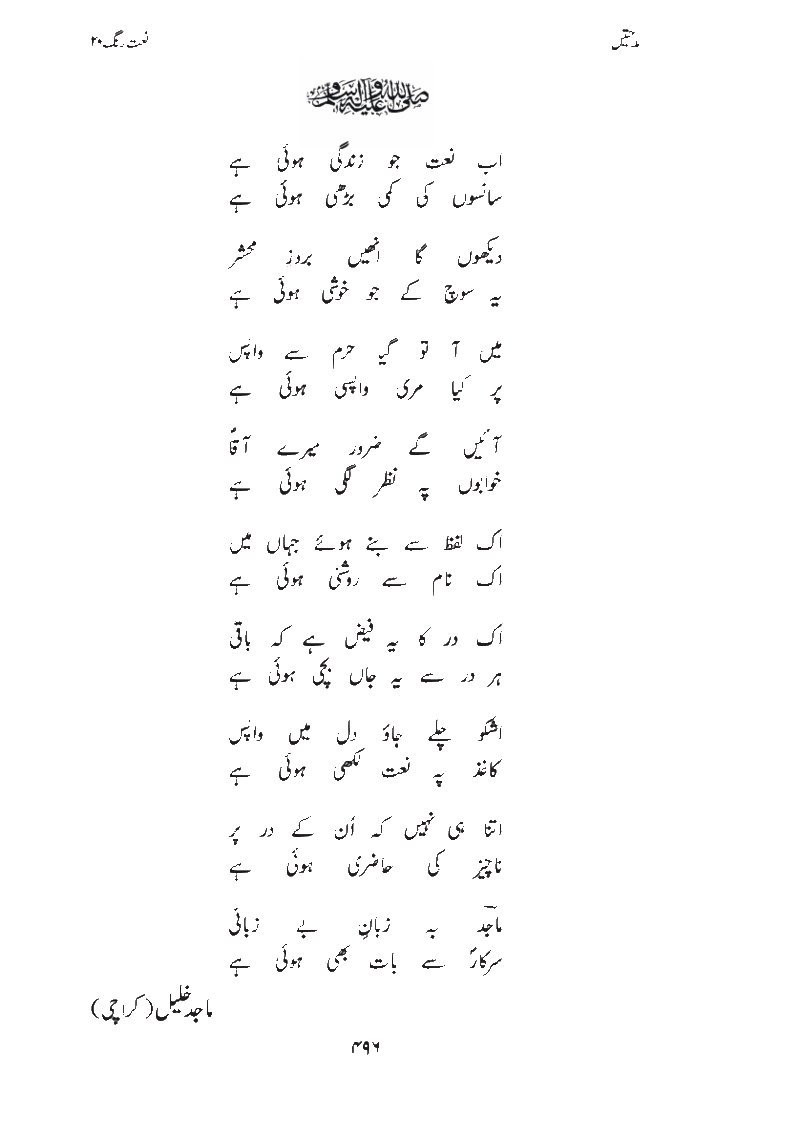 مدحتیں
نعت رنگ ۲۰
صلی اللہ علیہ وآلہ وسلم
اب نعت جو زندگی ہوئی ہے
سانسوں کی کمی بڑھی ہوئی ہے
دیکھوں گا انھیں بروز محشر
یہ سوچ کے جو خوشی ہوئی ہے
میں آ تو گیا حرم سے واپس
پر کیا مری واپسی ہوئی ہے
آئیں گے ضرور میرے آقاؐ
خوابوں پہ نظر لگی ہوئی ہے
اک لفظ سے بنے ہوئے جہاں میں
اک نام سے روشنی ہوئی ہے
اک در کا یہ فیض ہے کہ باقی
ہر در سے یہ جاں بچی ہوئی ہے
اشکو چلے جاؤ دل میں واپس
کاغذ پہ نعت لکھی ہوئی ہے
اتنا ہی نہیں کہ اُن کے در پر
ناچیز کی حاضری ہوئی ہے
ماجدؔ بہ زبانِ بے زبانی
سرکارؐ سے بات بھی ہوئی ہے
ماجد خلیل (کراچی)
۴۹۶